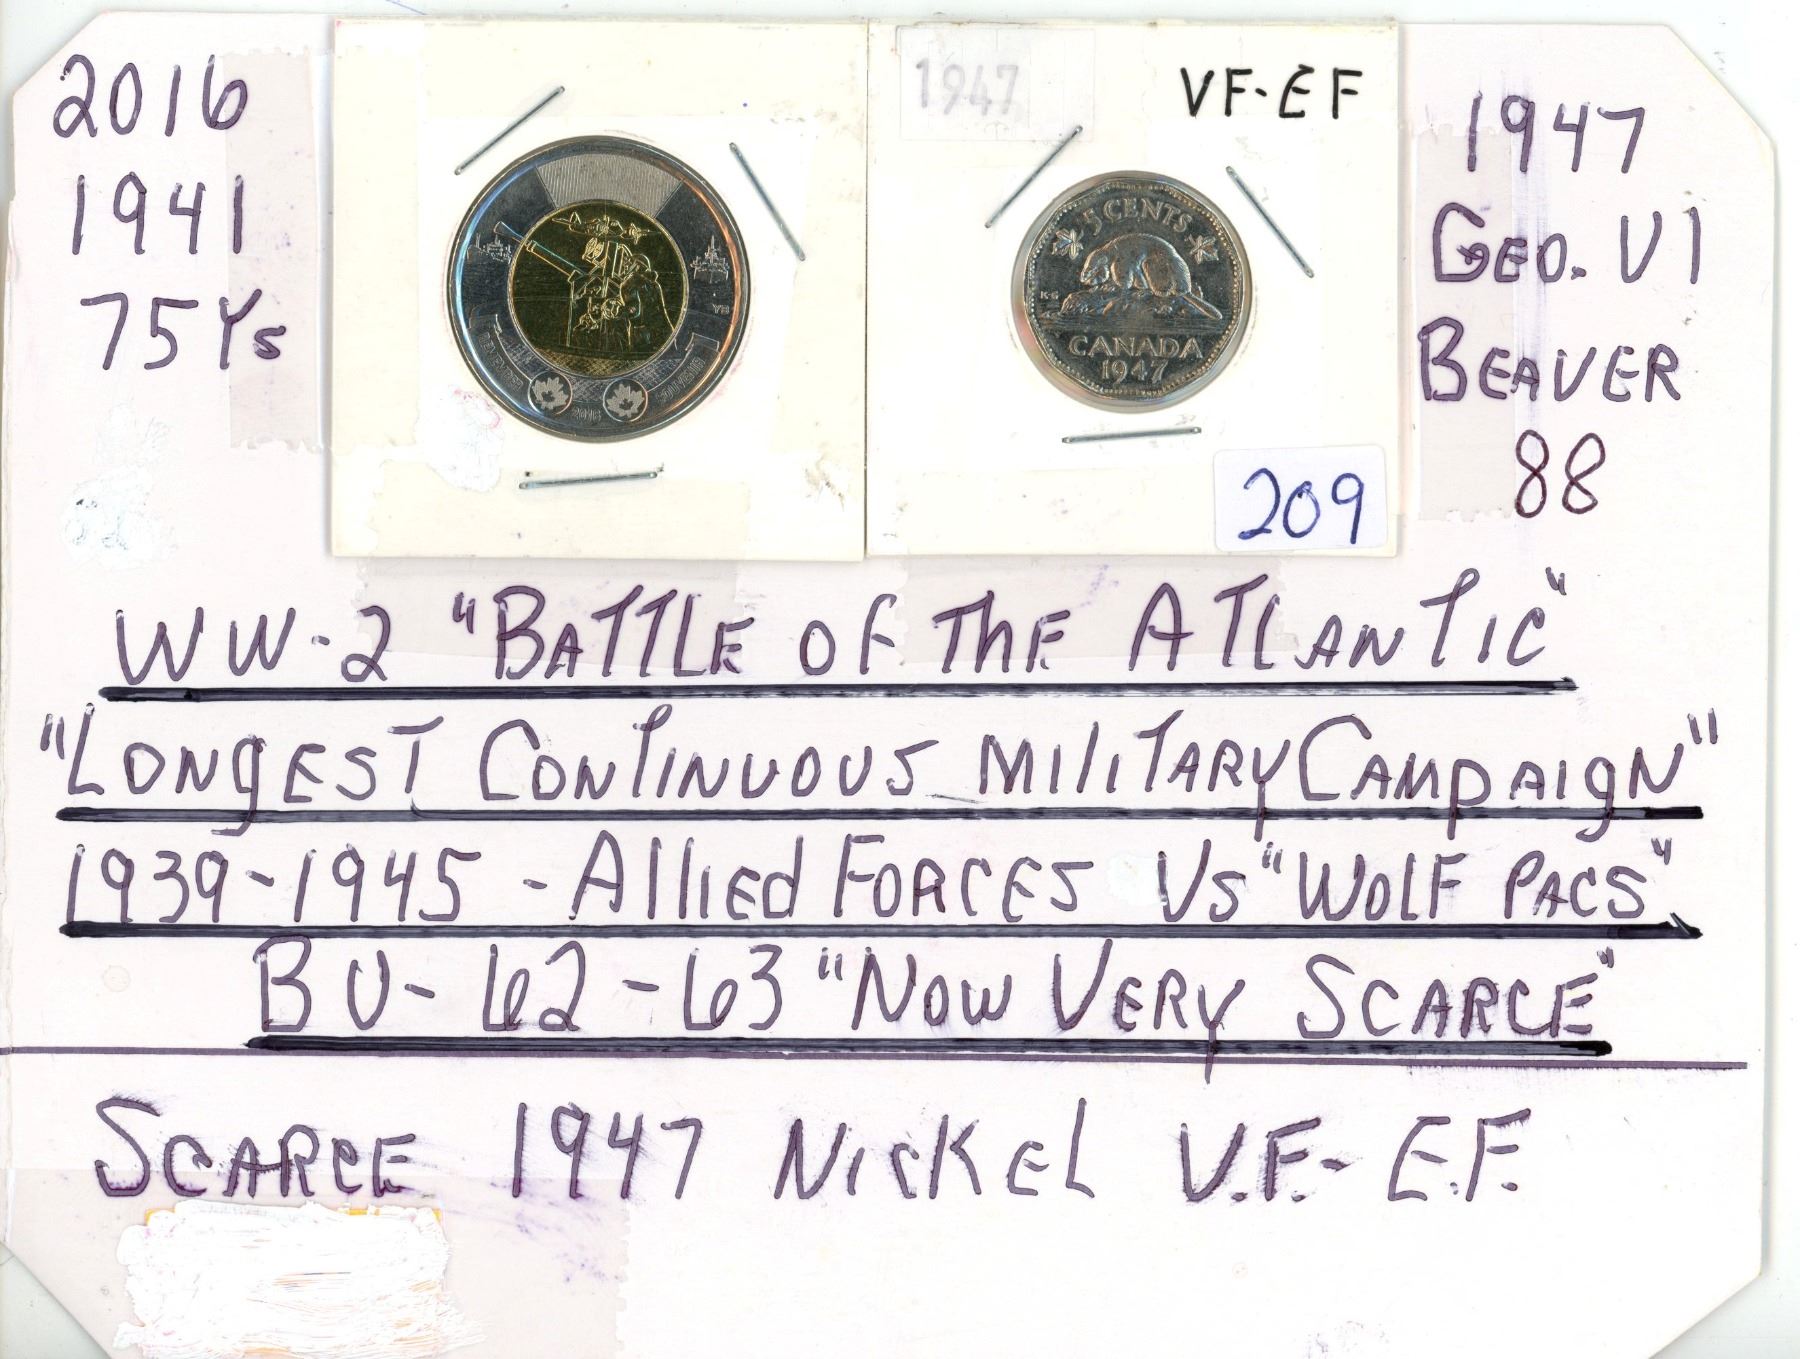 2016
1941
75 Ys
1947
VF-EF
5 CENTS
K·G
CANADA
1947
YB
REMEMBER
2016
SOUVENIR
209
1947
GEO. VI
BEAVER
88
WW-2 "BATTLE OF THE ATLANTIC"
"LONGEST CONTINUOUS MILITARY CAMPAIGN"
1939-1945 - Allied FORCES Vs "WOLF PACS"
BU-62-63 "NOW VERY SCARCE"
SCARCE 1947 NICKEL V.F.- E.F.